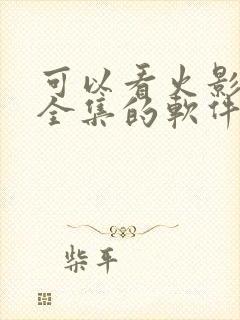 可以看火影
全集的軟件
柴平